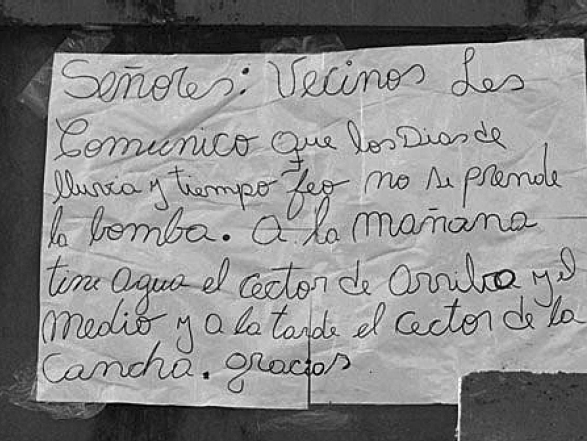 Señores: Vecinos Les
Comunico que los Dias de
lluvia y tiempo feo no se prende
la bomba. a la mañana
tine agua el cector de arriba y el
medio y a la tarde el cector de la
Cancha. gracias